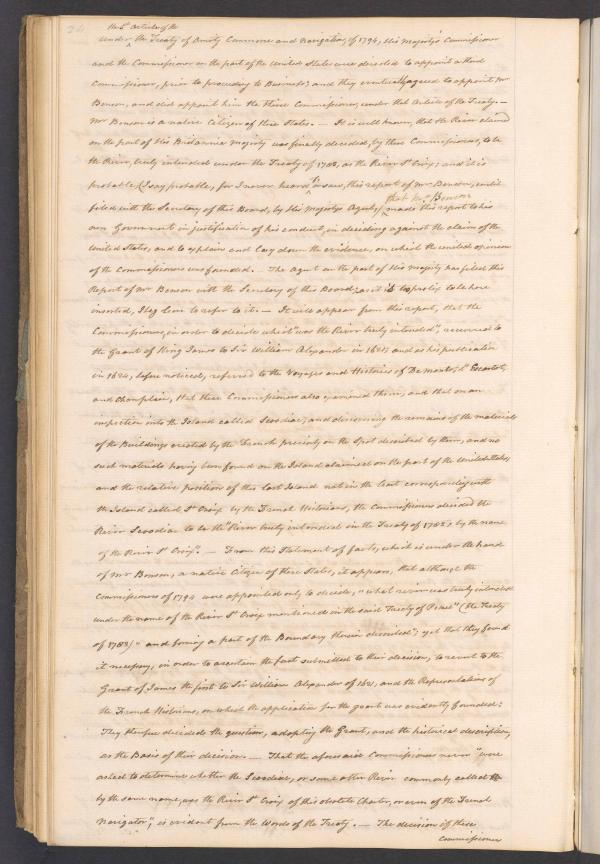 the 5th Article of the
under the Treaty of Amity Commerce and Navigation, of 1794, His Majestys Commissioner
and the Commissioner on the part of the United States were directed to appoint a third
Commissioner, prior to proceeding to Business; and they eventually agreed to appoint Mr
Benson, and did appoint him the third Commissioner, under that Article of the Treaty. —
Mr Benson is a native Citizen of these States. — It is well known, that the River claimed
on the part of His Britannic Majesty was finally decided, by these Commissioners, to be
the River, truly intended under the Treaty of 1783, as the River St Croix; and it is
probable, (I say probable, for I never heard of or saw, this report of Mr Benson, until
filed with the Secretary of this Board, by His Majestys Agent,) that Mr Benson made this report to his
own Government in justification of his conduct, in deciding against the claim of the
United States, and to explain and lay down the evidence, on which the united opinion
of the Commissioners was founded. — The Agent on the part of His Majesty has filed this
Report of Mr Benson with the Secretary of this Board; as it is too prolix to be here
inserted, I beg leave to refer to it. — It will appear from this report, that the
Commissioners, in order to decide which "was the River truly intended", recurred to
the Grant of King James to Sir William Alexander in 1621; and as his publication
in 1624, before noticed, referred to the Voyages and Histories of De Monts, L'Escarbot,
and Champlain, that these Commissioners also examined them, and that on an
inspection into the Island called Scoodiac, and discovering the remains of the materials
of the Buildings erected by the French precisely on the Spot described by them, and no
such materials having been found on the Island claimed on the part of the United States,
and the relative position of this last Island not in the least corresponding with
the Island called St Croix by the French Historians, the Commissioners decided the
River Scoodiac to be the "River truly intended in the Treaty of 1783; by the name
of the River St Croix". — From this Statement of facts, which is under the hand
of Mr Benson, a native Citizen of these States, it appears, that although the
Commissioners of 1794 were appointed only to decide, "what river was truly intended
under the name of the River St Croix mentioned in the said Treaty of Peace" (the Treaty
of 1783) "and forming a part of the Boundary therein described"; yet that they found
it necessary, in order to ascertain the fact submitted to their decision, to recur to the
Grant of James the first to Sir William Alexander of 1621, and the Representations of
the French Historians, on which the application for the grant was evidently founded:
They therefore decided the question, adopting the Grant, and the historical description,
as the Basis of their decision. — That the aforesaid Commissioners never "were
asked to determine whether the Scoodiac, or some other River commonly called
by the same name, was the River St Croix of this obsolete Charter, or even of the French
Navigator", is evident from the Words of the Treaty. — The decision of these
Commissioners